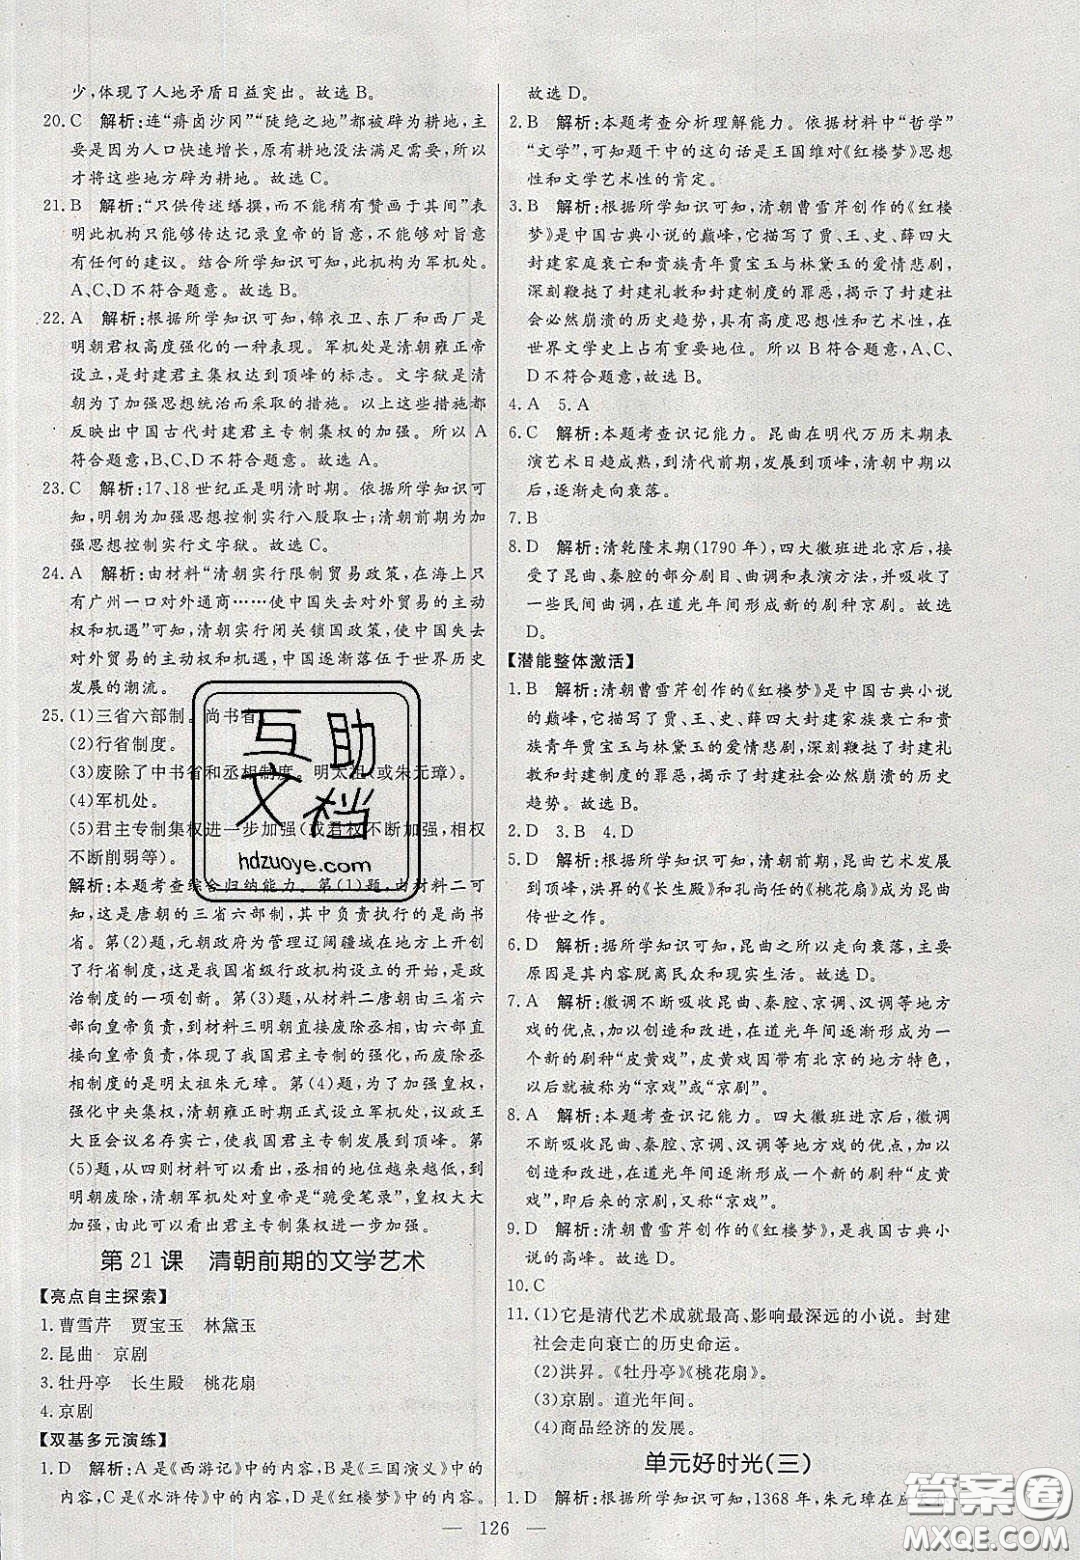 少,体现了人地矛盾日益突出。故选 B。
20. C 解析:连“瘠卤沙冈”“陡绝之地”都被辟为耕地,主
要是因为人口快速增长,原有耕地没法满足需要,所以
才将这些地方辟为耕地。故选 C。
21. B 解析:“只供传述缮撰,而不能稍有赞画于其间”表
明此机构只能够传达记录皇帝的旨意,不能够对旨意
有任何的建议。结合所学知识可知,此机构为军机处。
A、C、D 不符合题意。故选 B。
22. A 解析:根据所学知识可知,锦衣卫、东厂和西厂是
明朝君权高度强化的一种表现。军机处是清朝雍正帝
设立,是封建君主集权达到顶峰的标志。文字狱是清
朝为了加强思想统治而采取的措施。以上这些措施都
反映出中国古代封建君主专制集权的加强。所以 A
符合题意,B、C、D 不符合题意。故选 A。
23. C 解析:17、18 世纪正是明清时期。依据所学知识可
知,明朝为加强思想控制实行八股取士;清朝前期为加
强思想控制实行文字狱。故选 C。
24. A 解析:由材料“清朝实行限制贸易政策,在海上只
有广州一口对外通商……使中国失去对外贸易的主动
权和机遇”可知,清朝实行闭关锁国政策,使中国失去
对外贸易的主动权和机遇,中国逐渐落伍于世界历史
发展的潮流。
25. (1)三省六部制。尚书省。
(2)行省制度。
(3)废除了中书省和丞相制度。明太祖(或朱元璋)。
(4)军机处。
(5)君主专制集权进一步加强(或君权不断加强,相权
不断削弱等)。
解析:本题考查综合归纳能力。第(1)题,由材料二可
知,这是唐朝的三省六部制,其中负责执行的是尚书
省。第(2)题,元朝政府为管理辽阔疆域在地方上开创
了行省制度,这是我国省级行政机构设立的开始,是政
治制度的一项创新。第(3)题,从材料二唐朝由三省六
部向皇帝负责,到材料三明朝直接废除丞相,由六部直
接向皇帝负责,体现了我国君主专制的强化,而废除丞
相制度的是明太祖朱元璋。第(4)题,为了加强皇权,
强化中央集权,清朝雍正时期正式设立军机处,议政王
大臣会议名存实亡,使我国君主专制发展到顶峰。第
(5)题,从四则材料可以看出,丞相的地位越来越低,到
明朝废除,清朝军机处对皇帝是“跪受笔录”,皇权大大
加强,由此可以看出君主专制集权进一步加强。
第 21 课 清朝前期的文学艺术
【亮点自主探索】
1. 曹雪芹 贾宝玉 林黛玉
2. 昆曲 京剧
3. 牡丹亭 长生殿 桃花扇
4. 京剧
【双基多元演练】
1. D 解析:A 是《西游记》中的内容,B 是《三国演义》中
的内容,C 是《水浒传》中的内容,D 是《红楼梦》的内容。
故选 D。
2. B 解析:本题考查分析理解能力。依据材料中“哲学”
“文学”,可知题干中的这句话是王国维对《红楼梦》思想
性和文学艺术性的肯定。
3. B 解析:根据所学知识可知,清朝曹雪芹创作的《红楼
梦》是中国古典小说的巅峰,它描写了贾、王、史、薛四大
封建家庭衰亡和贵族青年贾宝玉与林黛玉的爱情悲剧,
深刻鞭挞了封建礼教和封建制度的罪恶,揭示了封建社
会必然崩溃的历史趋势,具有高度思想性和艺术性,在
世界文学史上占有重要地位。所以 B 符合题意,A、C、
D 不符合题意,故选 B。
4. A 5. A
6. C 解析:本题考查识记能力。昆曲在明代万历末期表
演艺术日趋成熟,到清代前期,达到顶峰,清朝中期以
后,逐渐走向衰落。
7. B
8. D 解析:清乾隆末期(1790 年),四大徽班进北京后,接
受了昆曲、秦腔的部分剧目、曲调和表演方法,并吸收了
一些民间曲调,在道光年间形成新的剧种京剧。故选
D。
【潜能整体激活】
1. B 解析:清朝曹雪芹创作的《红楼梦》是中国古典小说
的巅峰,它描写了贾、王、史、薛四大封建家族衰亡和贵
族青年贾宝玉与林黛玉的爱情悲剧,深刻鞭挞了封建礼
教和封建制度的罪恶,揭示了封建社会必然崩溃的历史
趋势。故选 B。
2. D 3. B 4. D
5. D 解析:根据所学知识可知,清朝前期,昆曲艺术发展
到顶峰,洪昇的《长生殿》和孔尚任的《桃花扇》成为昆曲
传世之作。
6. D 解析:据所学知识可知,昆曲之所以走向衰落,主要
原因是其内容脱离民众和现实生活。故选 D。
7. A 解析:徽调不断吸收昆曲、秦腔、京调、汉调等地方
戏的优点,加以创造和改进,在道光年间逐渐形成为一
个新的剧种“皮黄戏”,皮黄戏因带有北京的地方特色,
以后就被称为“京戏”或“京剧”。
8. A 解析:本题考查识记能力。四大徽班进京后,徽调
不断吸收昆曲、秦腔、京调、汉调等地方戏的优点,加以
创造和改进,在道光年间逐渐形成一个新的剧种“皮黄
戏”,即后来的京剧,又称“京戏”。
9. D 解析:清朝曹雪芹创作的《红楼梦》,是我国古典小
说的高峰。
10. C
11. (1)它是清代艺术成就最高、影响最深远的小说。封建
社会走向衰亡的历史命运。
(2)洪昇。《牡丹亭》《桃花扇》。
(3)京剧。道光年间。
(4)商品经济的发展。
单元好时光(三)
1. D 解析:根据所学知识可知,1368 年,朱元璋在应
— 126 —
互助
文档
hdzuoye.com
答案圈
MXQE.COM